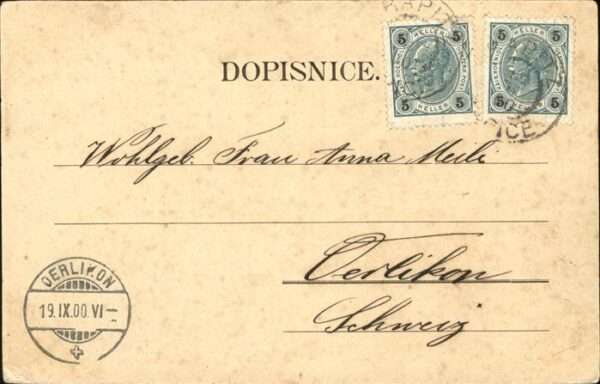 5 HELLER 5
5 HELLER 5
5 5
5 HELLER 5
5 HELLER 5
DOPISNICE.
ICE
Wohlgeb. Frau Anna Meili
Oerlikon
Schweiz
OERLIKON
19.IX.00.VI-